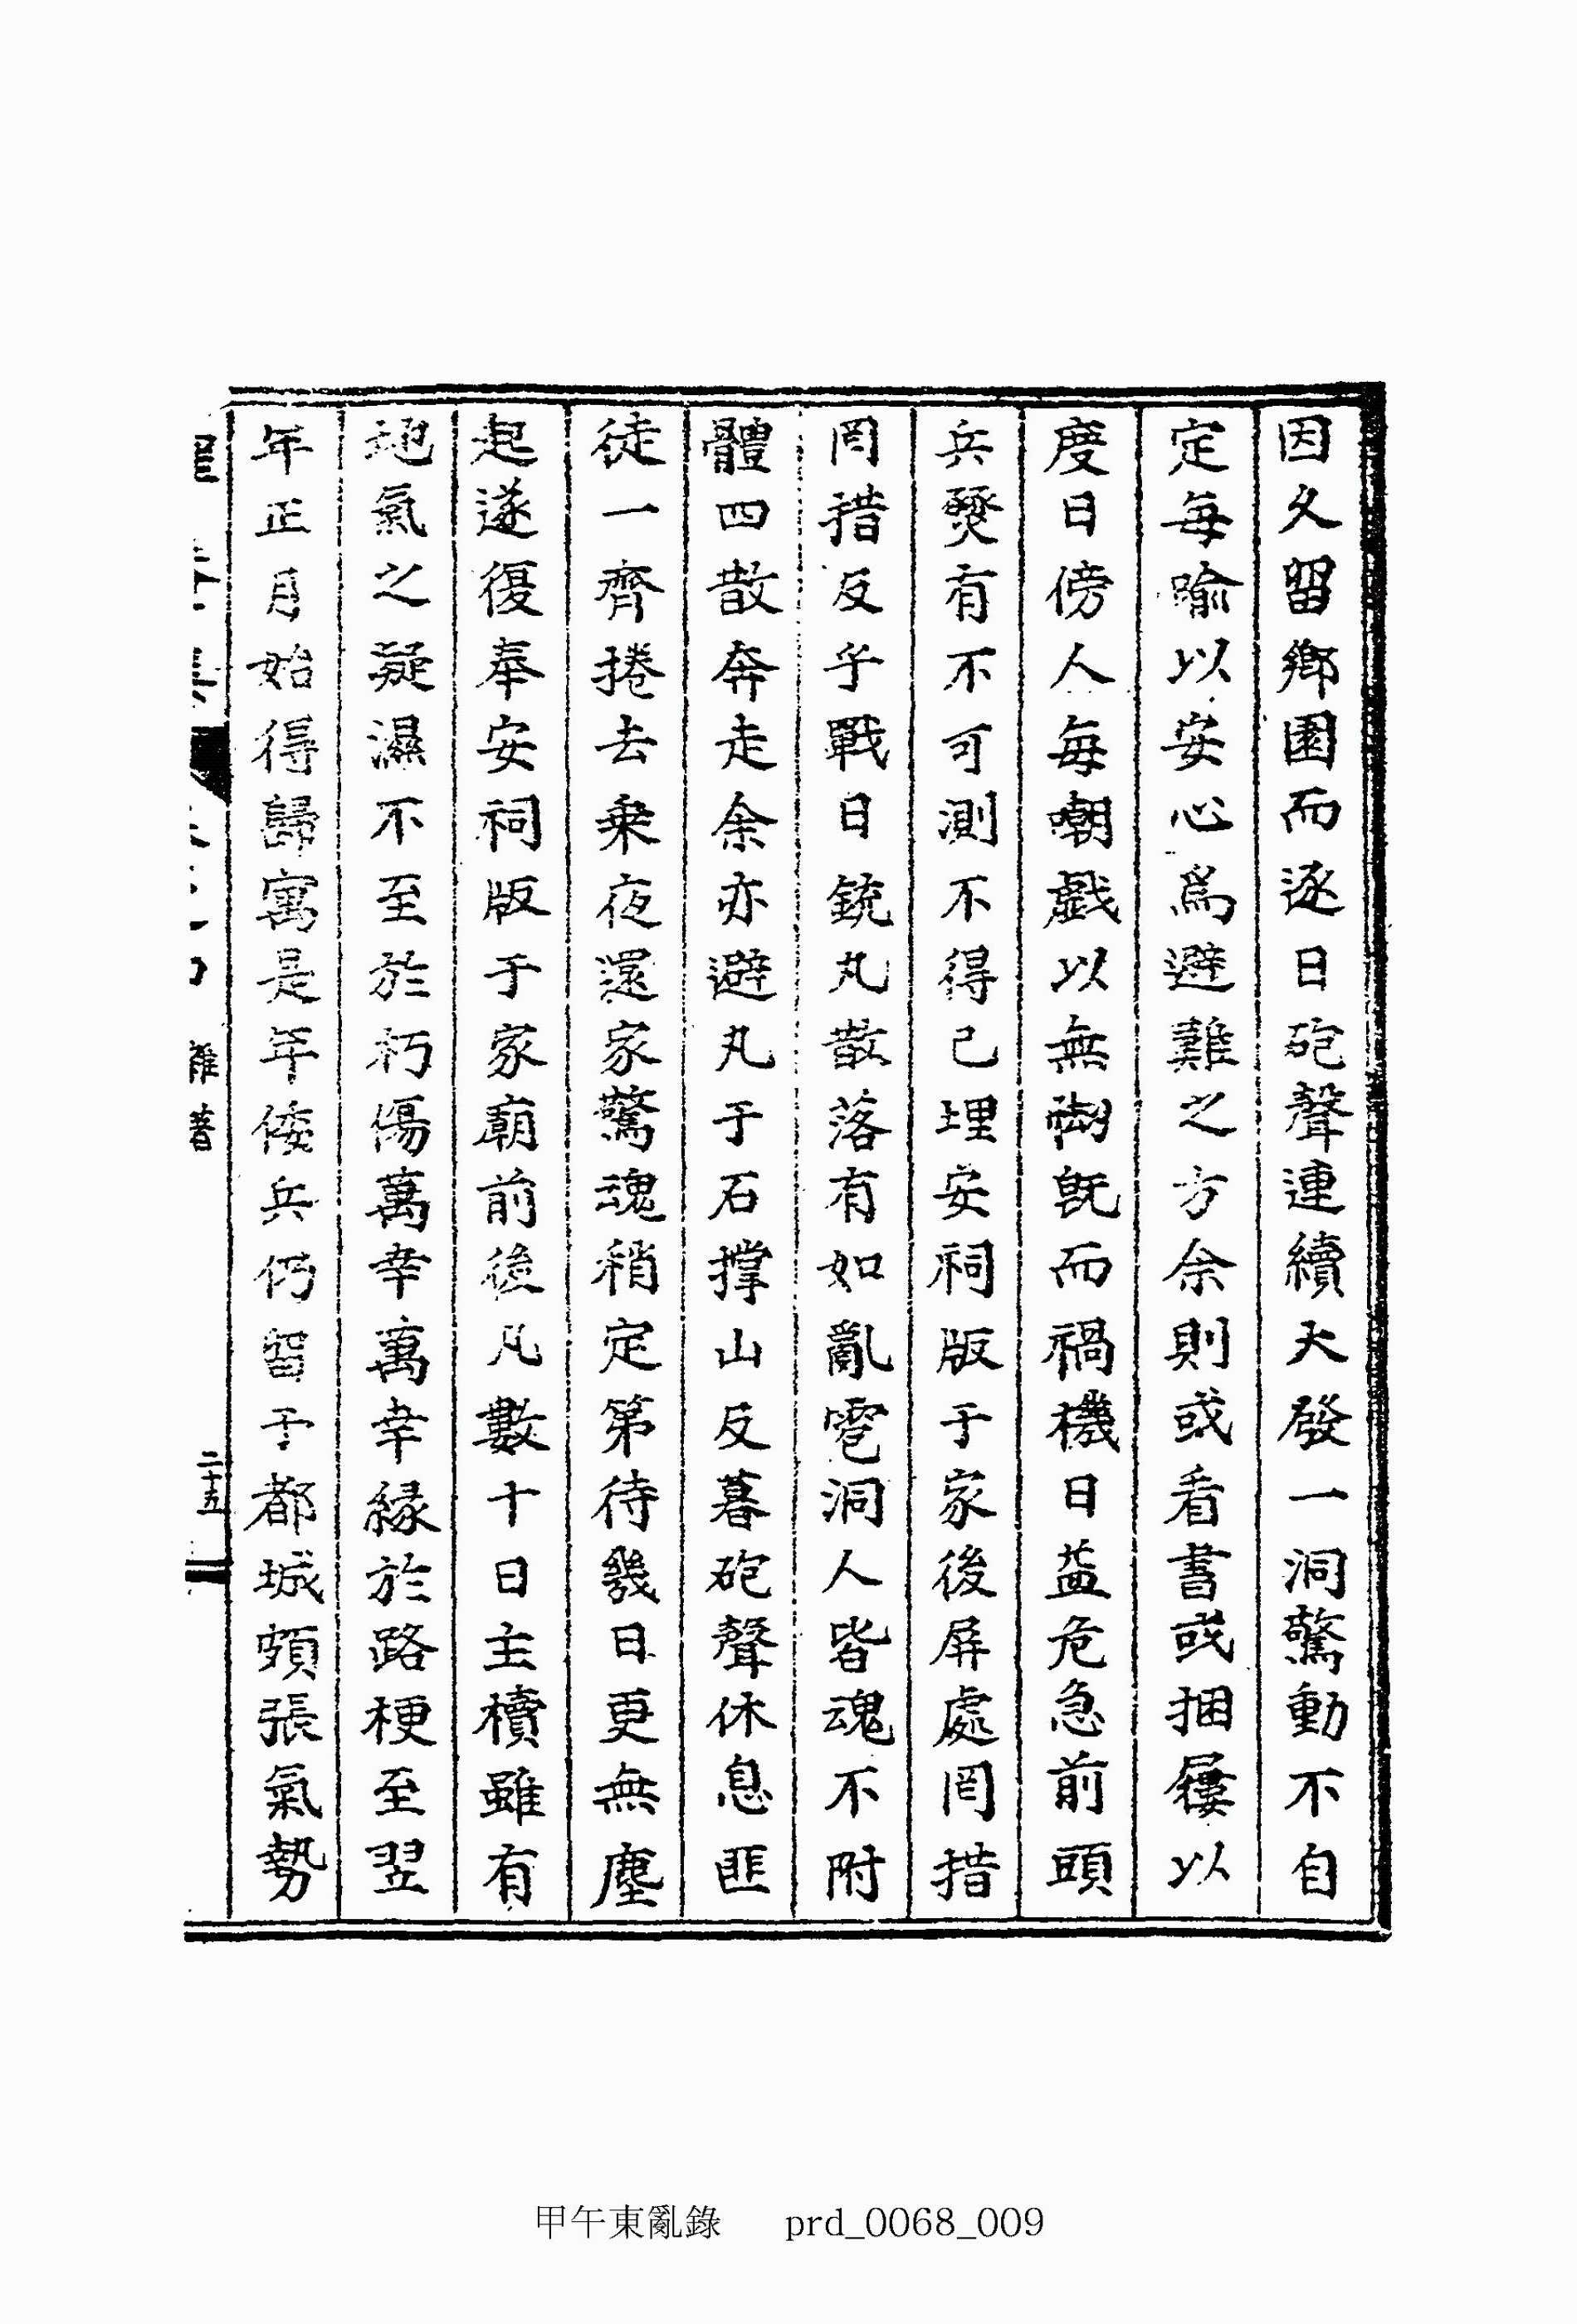 因久留鄕園而逐日砲聲連續大發一洞驚動不自
定每喩以安心爲避難之方余則或看書或捆屨以
度日傍人每嘲戱以無襧旣而禍機日益危急前頭
兵燹有不可測不得已埋安祠版于家後屛處罔措
罔措反乎戰日銃丸散落有如亂雹洞人皆魂不附
體四散奔走余亦避丸于石撑山反暮砲聲休息匪
徒一齊捲去乗夜還家驚魂稍定第待幾日更無塵
起遂復奉安祠版于家廟前後凡數十日主櫝雖有
地氣之凝濕不至於朽傷萬幸萬幸緣於路梗至翌
年正月始得歸寓是年倭兵仍留于都城頗張氣勢
雜著
二十五
甲午東亂錄 prd_0068_009